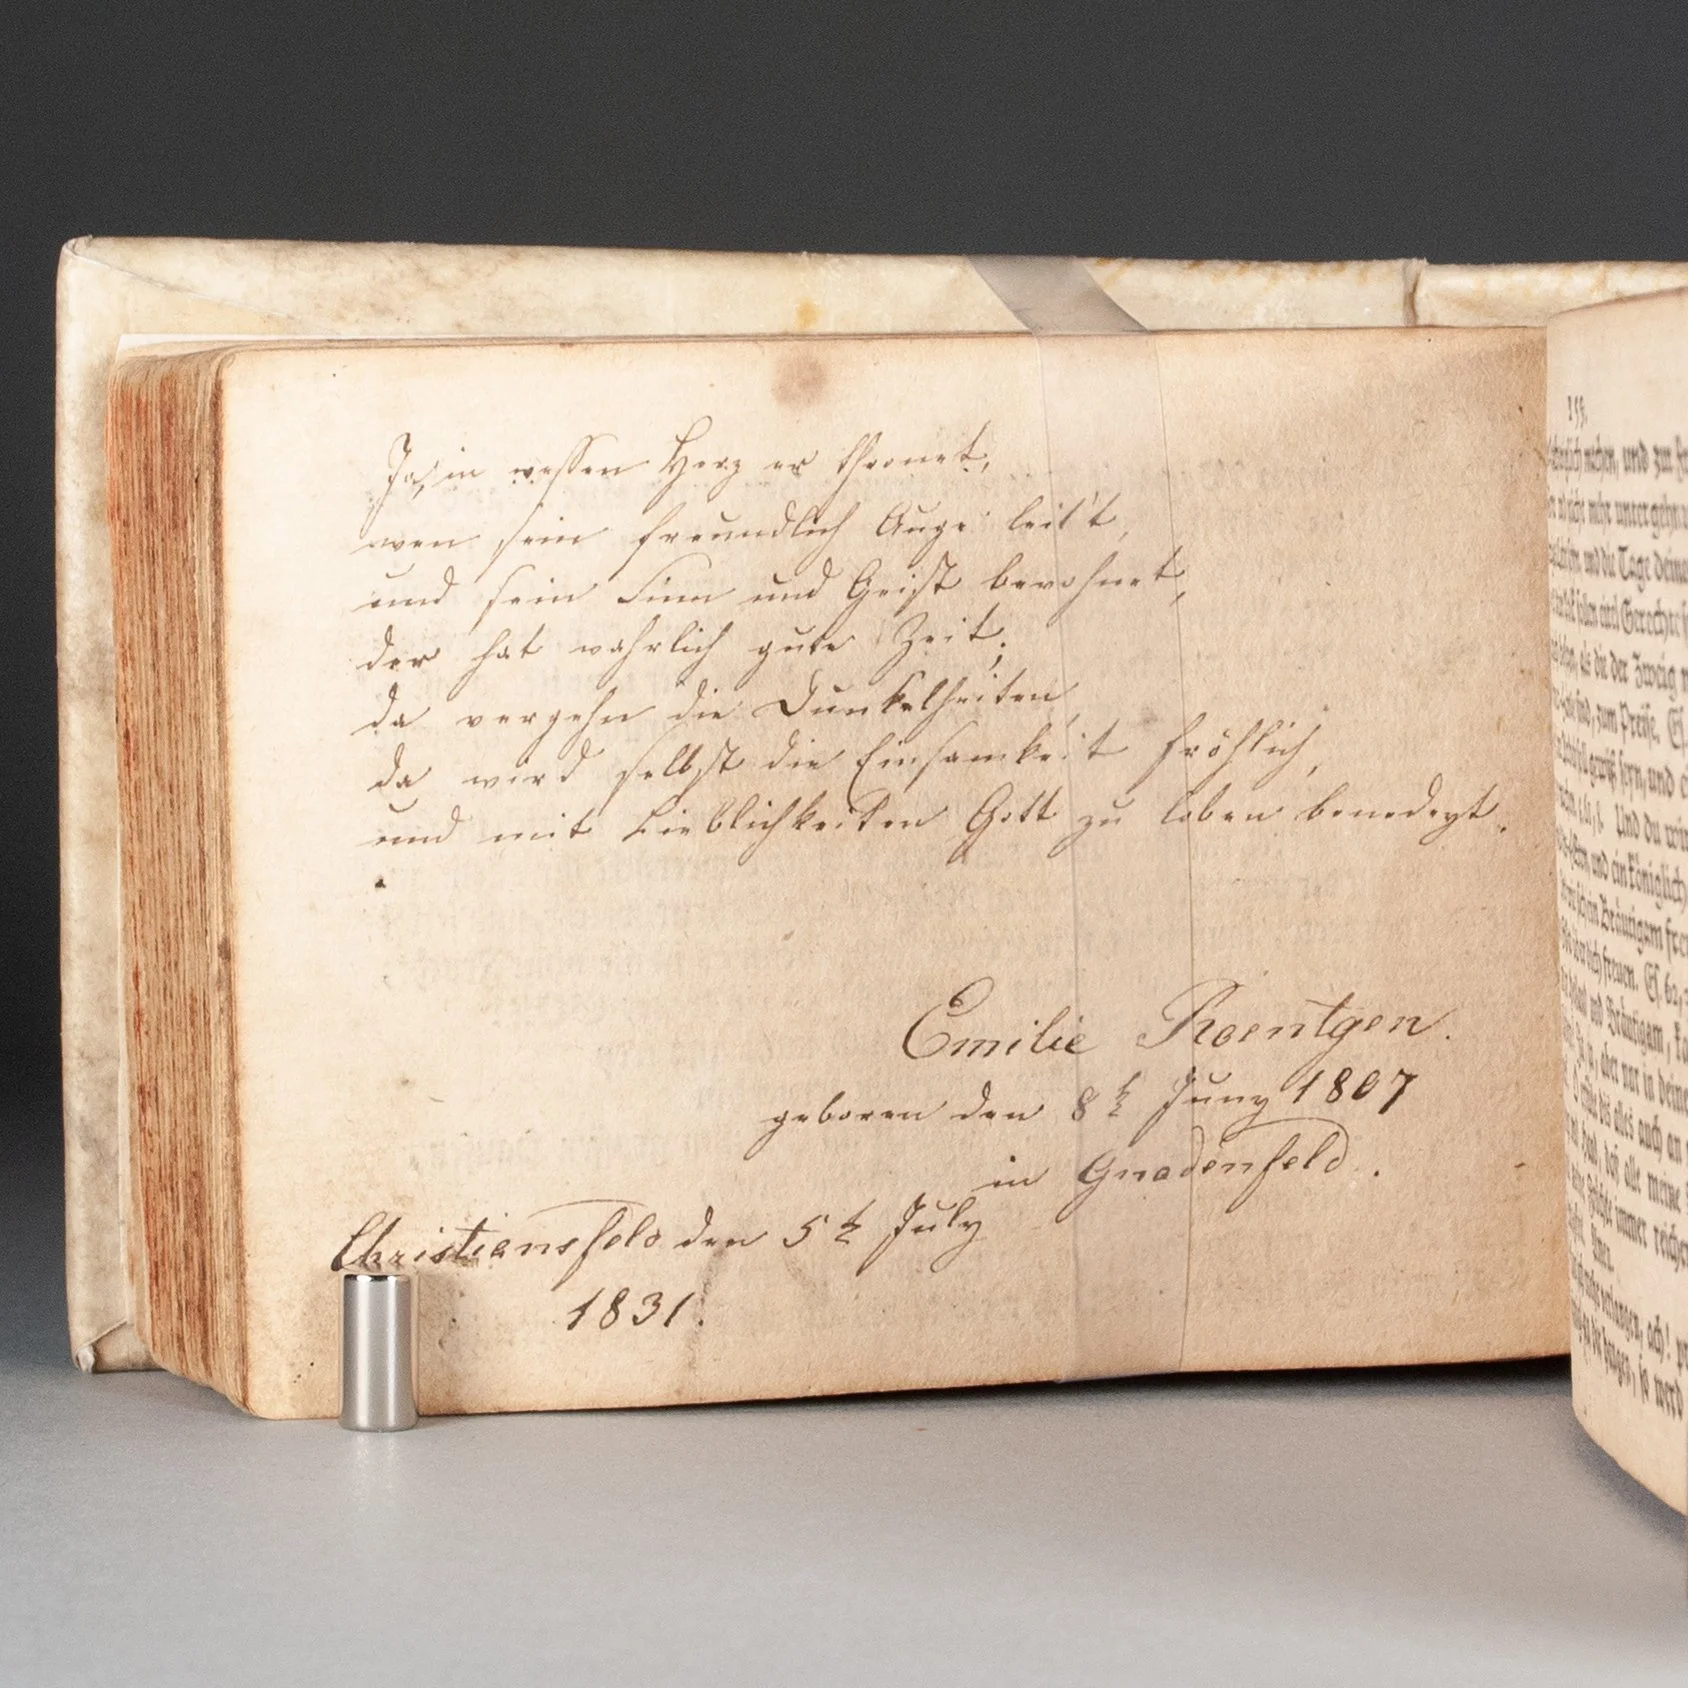 Ja, in wessen Herz er thronet,
wen sein freundlich Auge leit't,
und sein Sinn und Geist bewohnet,
der hat wahrlich gute Zeit;
da vergehn die Dunkelheiten,
da wird selbst die Einsamkeit fröhlich,
und mit Lieblichkeiten Gott zu loben benedeyt.
Emilie Roentgen.
geboren den 8t Juny 1807
in Gnadenfeld.
Christiansfeld den 5t July
1831.
159.
und zu
und die Tage deine
als die der Zweig
zum Preise. Es.
seyn, und
Und du wir
und ein königlich
Bräutigam freu
freuen. Es. 62,
und Bräutigam,
aber nur in deine
dis alles auch an
daß alle meine
immer reicher
Amen.
verlangen, ach!
so werd